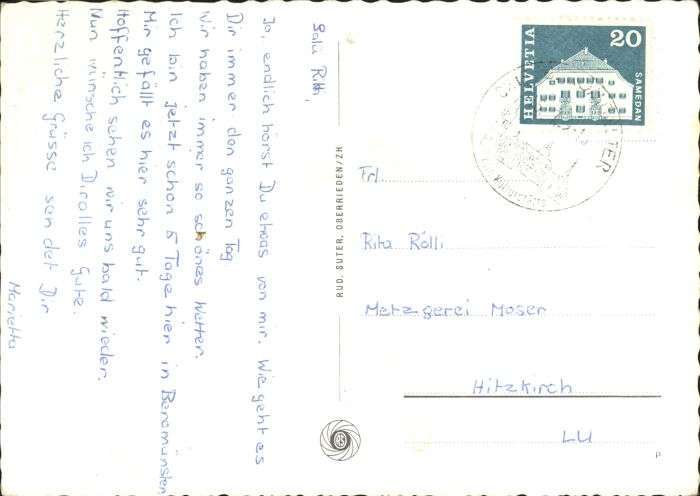 Salü Rita,
Ja, endlich hörst Du etwas von mir. Wie geht es
Dir immer den ganzen Tag
Wir haben immer so schönes Wetter.
Ich bin jetzt schon 5 Tage hier in Beromünster
Mir gefällt es hier sehr gut.
Hoffentlich sehen wir uns bald wieder.
Nun wünsche ich Dir alles Gute.
Herzliche Grüsse sendet Dir
Marietta
RUD. SUTER, OBERRIEDEN/ZH
HELVETIA
20
SAMEDAN
Frl.
Rita Rölli
Metzgerei Moser
Hitzkirch
LU